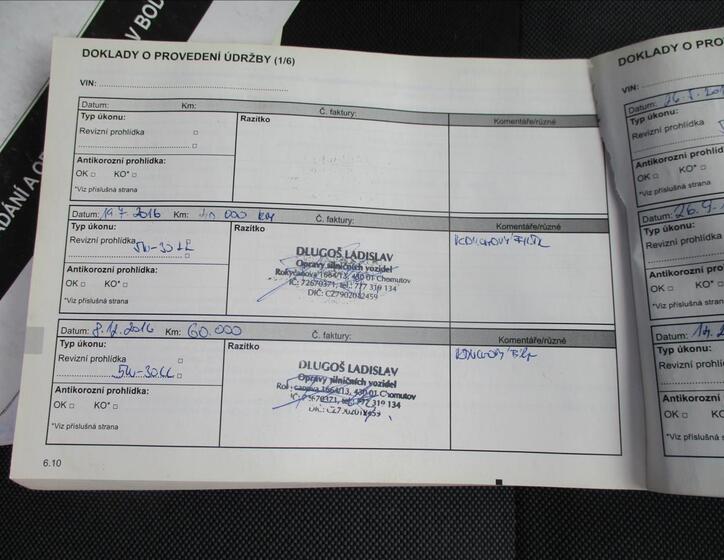 DOKLADY O PROVEDENÍ ÚDRŽBY (1/6)
VIN:
Datum: Km: Č. faktury: Komentáře/různé
Typ úkonu: Razítko
Revizní prohlídka
Antikorozní prohlídka:
OK KO*
*Viz příslušná strana
Datum: 19 7 2016 Km: 000 KM Č. faktury: Komentáře/různé
Typ úkonu: Razítko
Revizní prohlídka 5W-30
DLUGOŠ LADISLAV
Opravy silničních vozidel
Rokycanova 1664/13, 430 01 Chomutov
IČ: 72670371, tel.: 777 319 134
DIČ: CZ7902012459
Antikorozní prohlídka:
OK KO*
*Viz příslušná strana
Datum: 8.12.2016 Km: 60.000 Č. faktury: Komentáře/různé
Typ úkonu: Razítko
Revizní prohlídka
5W-30
DLUGOŠ LADISLAV
Opravy silničních vozidel
1664/13, 430 01 Chomutov
319 134
Antikorozní prohlídka:
OK KO*
*Viz příslušná strana
6.10
DOKLADY O PRO
VIN:
Datum:
Typ úkonu:
Revizní prohlídka
Antikorozní prohlíd
OK KO*
*Viz příslušná strana
Datum: 26.9.
Typ úkonu:
Revizní prohlídka
Antikorozní prohl
OK KO*
*Viz příslušná stran
Datum: 14.2
Typ úkonu:
Revizní prohlídk
Antikorozní pro
OK KO*
*Viz příslušná stra
V BOD